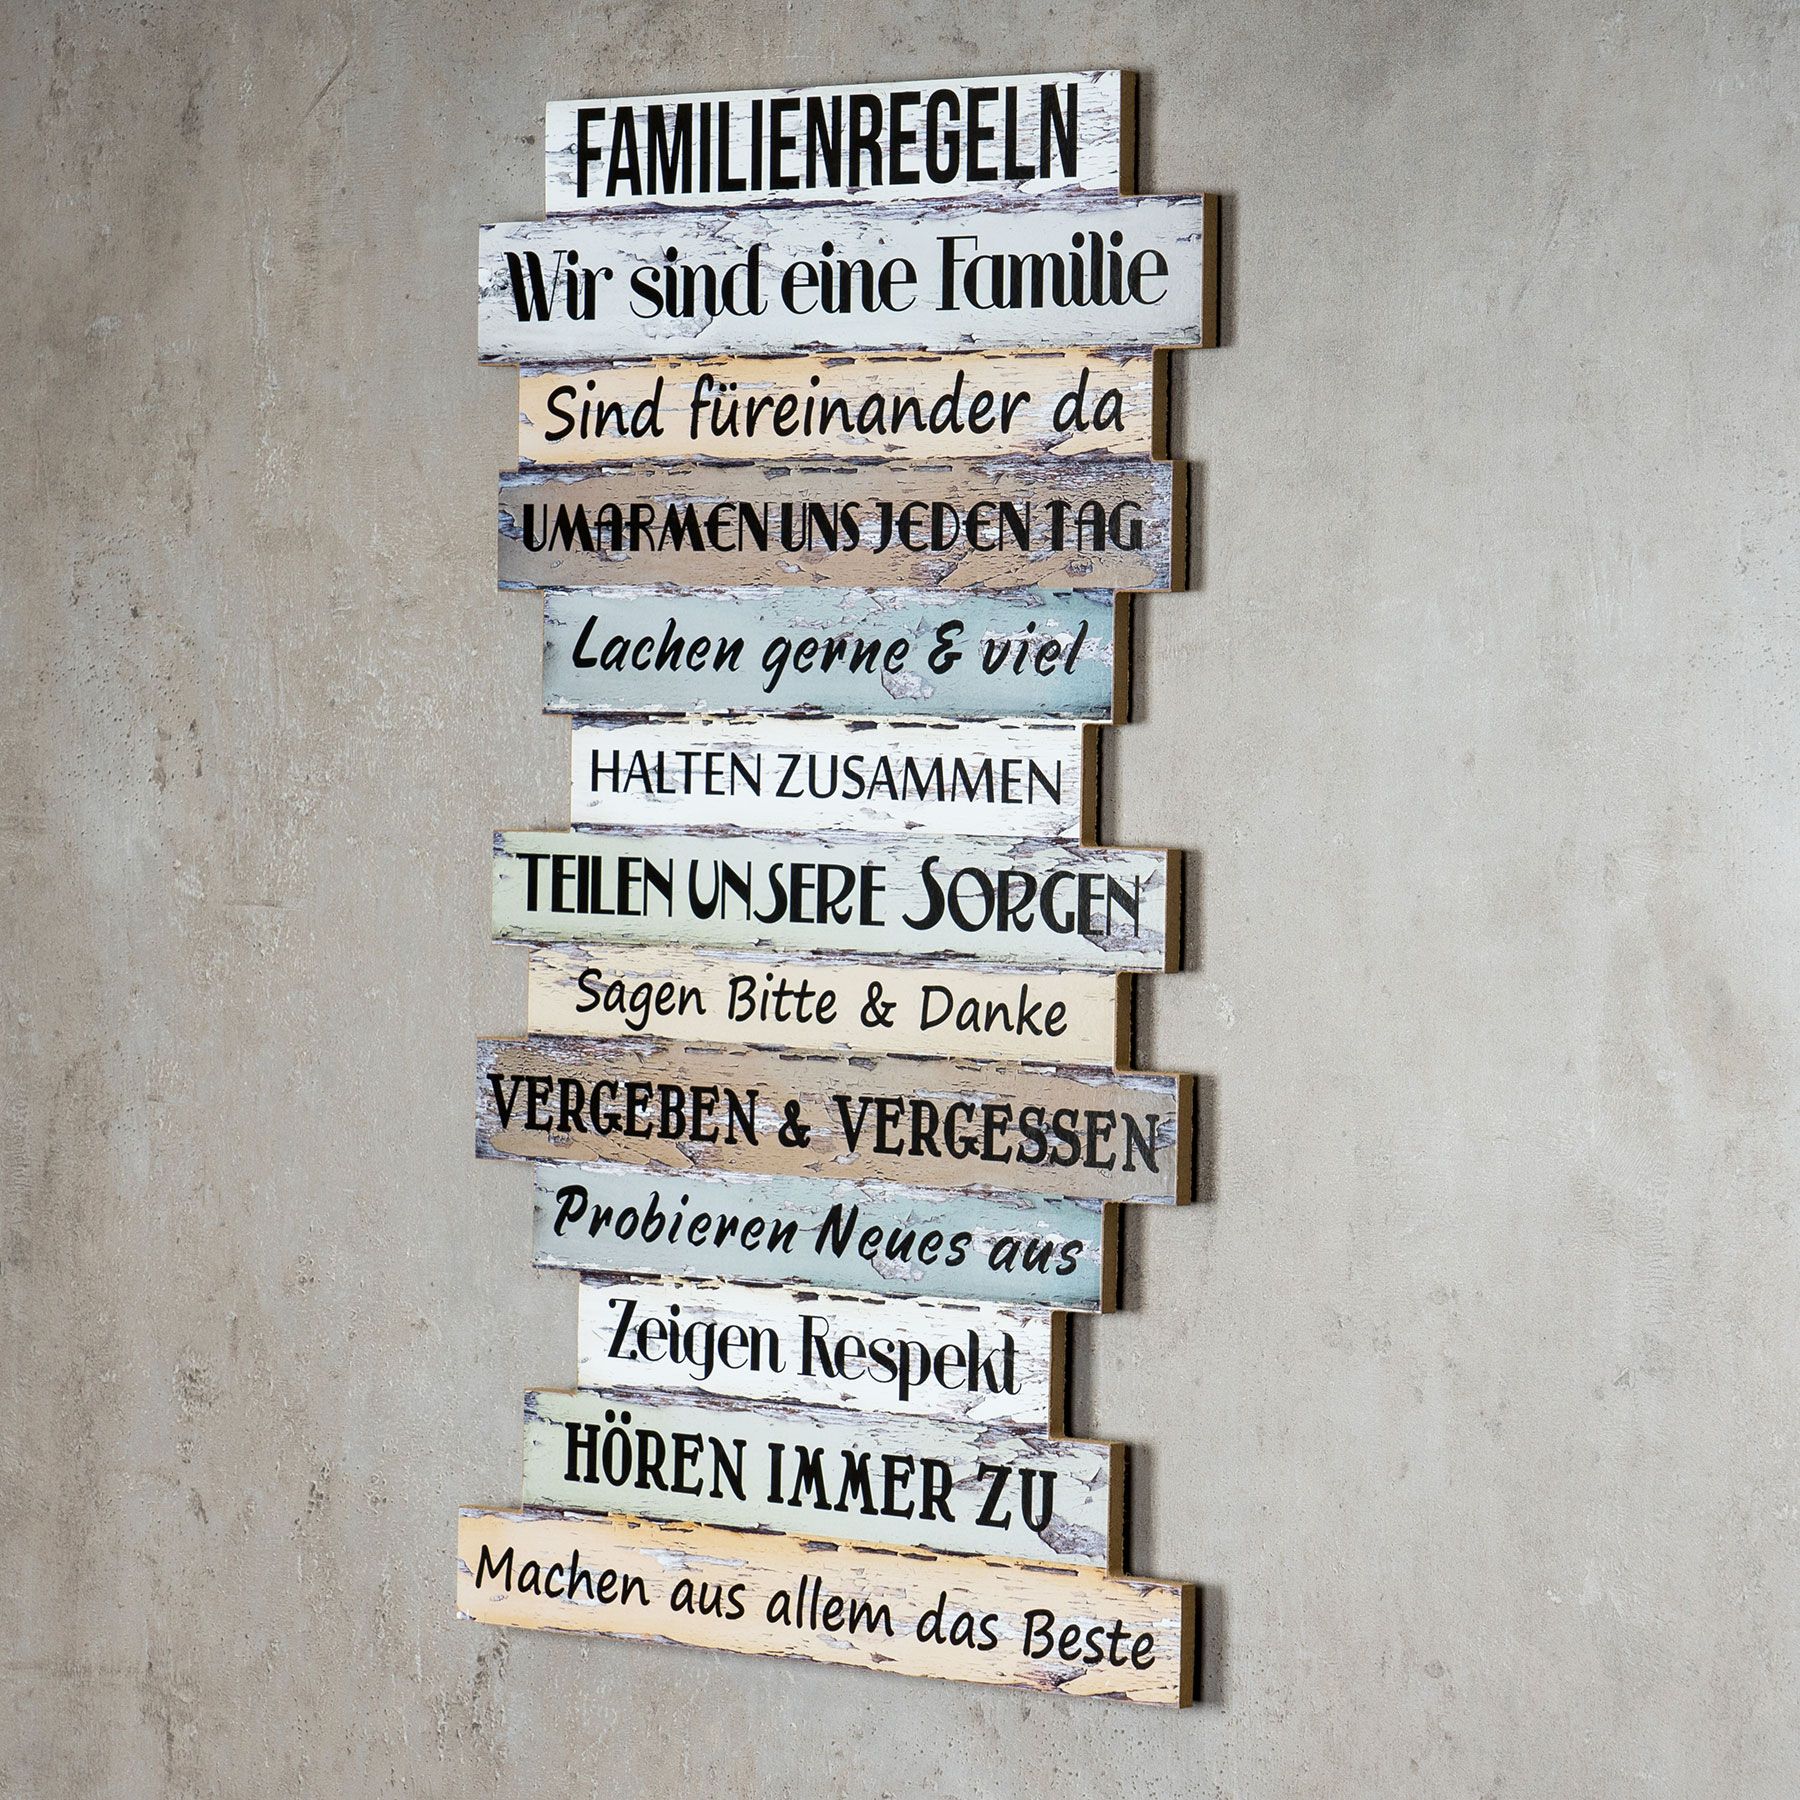 FAMILIENREGELN
Wir sind eine Familie
Sind füreinander da
UMARMEN UNS JEDEN TAG
Lachen gerne & viel
HALTEN ZUSAMMEN
TEILEN UNSERE SORGEN
Sagen Bitte & Danke
VERGEBEN & VERGESSEN
Probieren Neues aus
Zeigen Respekt
HÖREN IMMER ZU
Machen aus allem das Beste